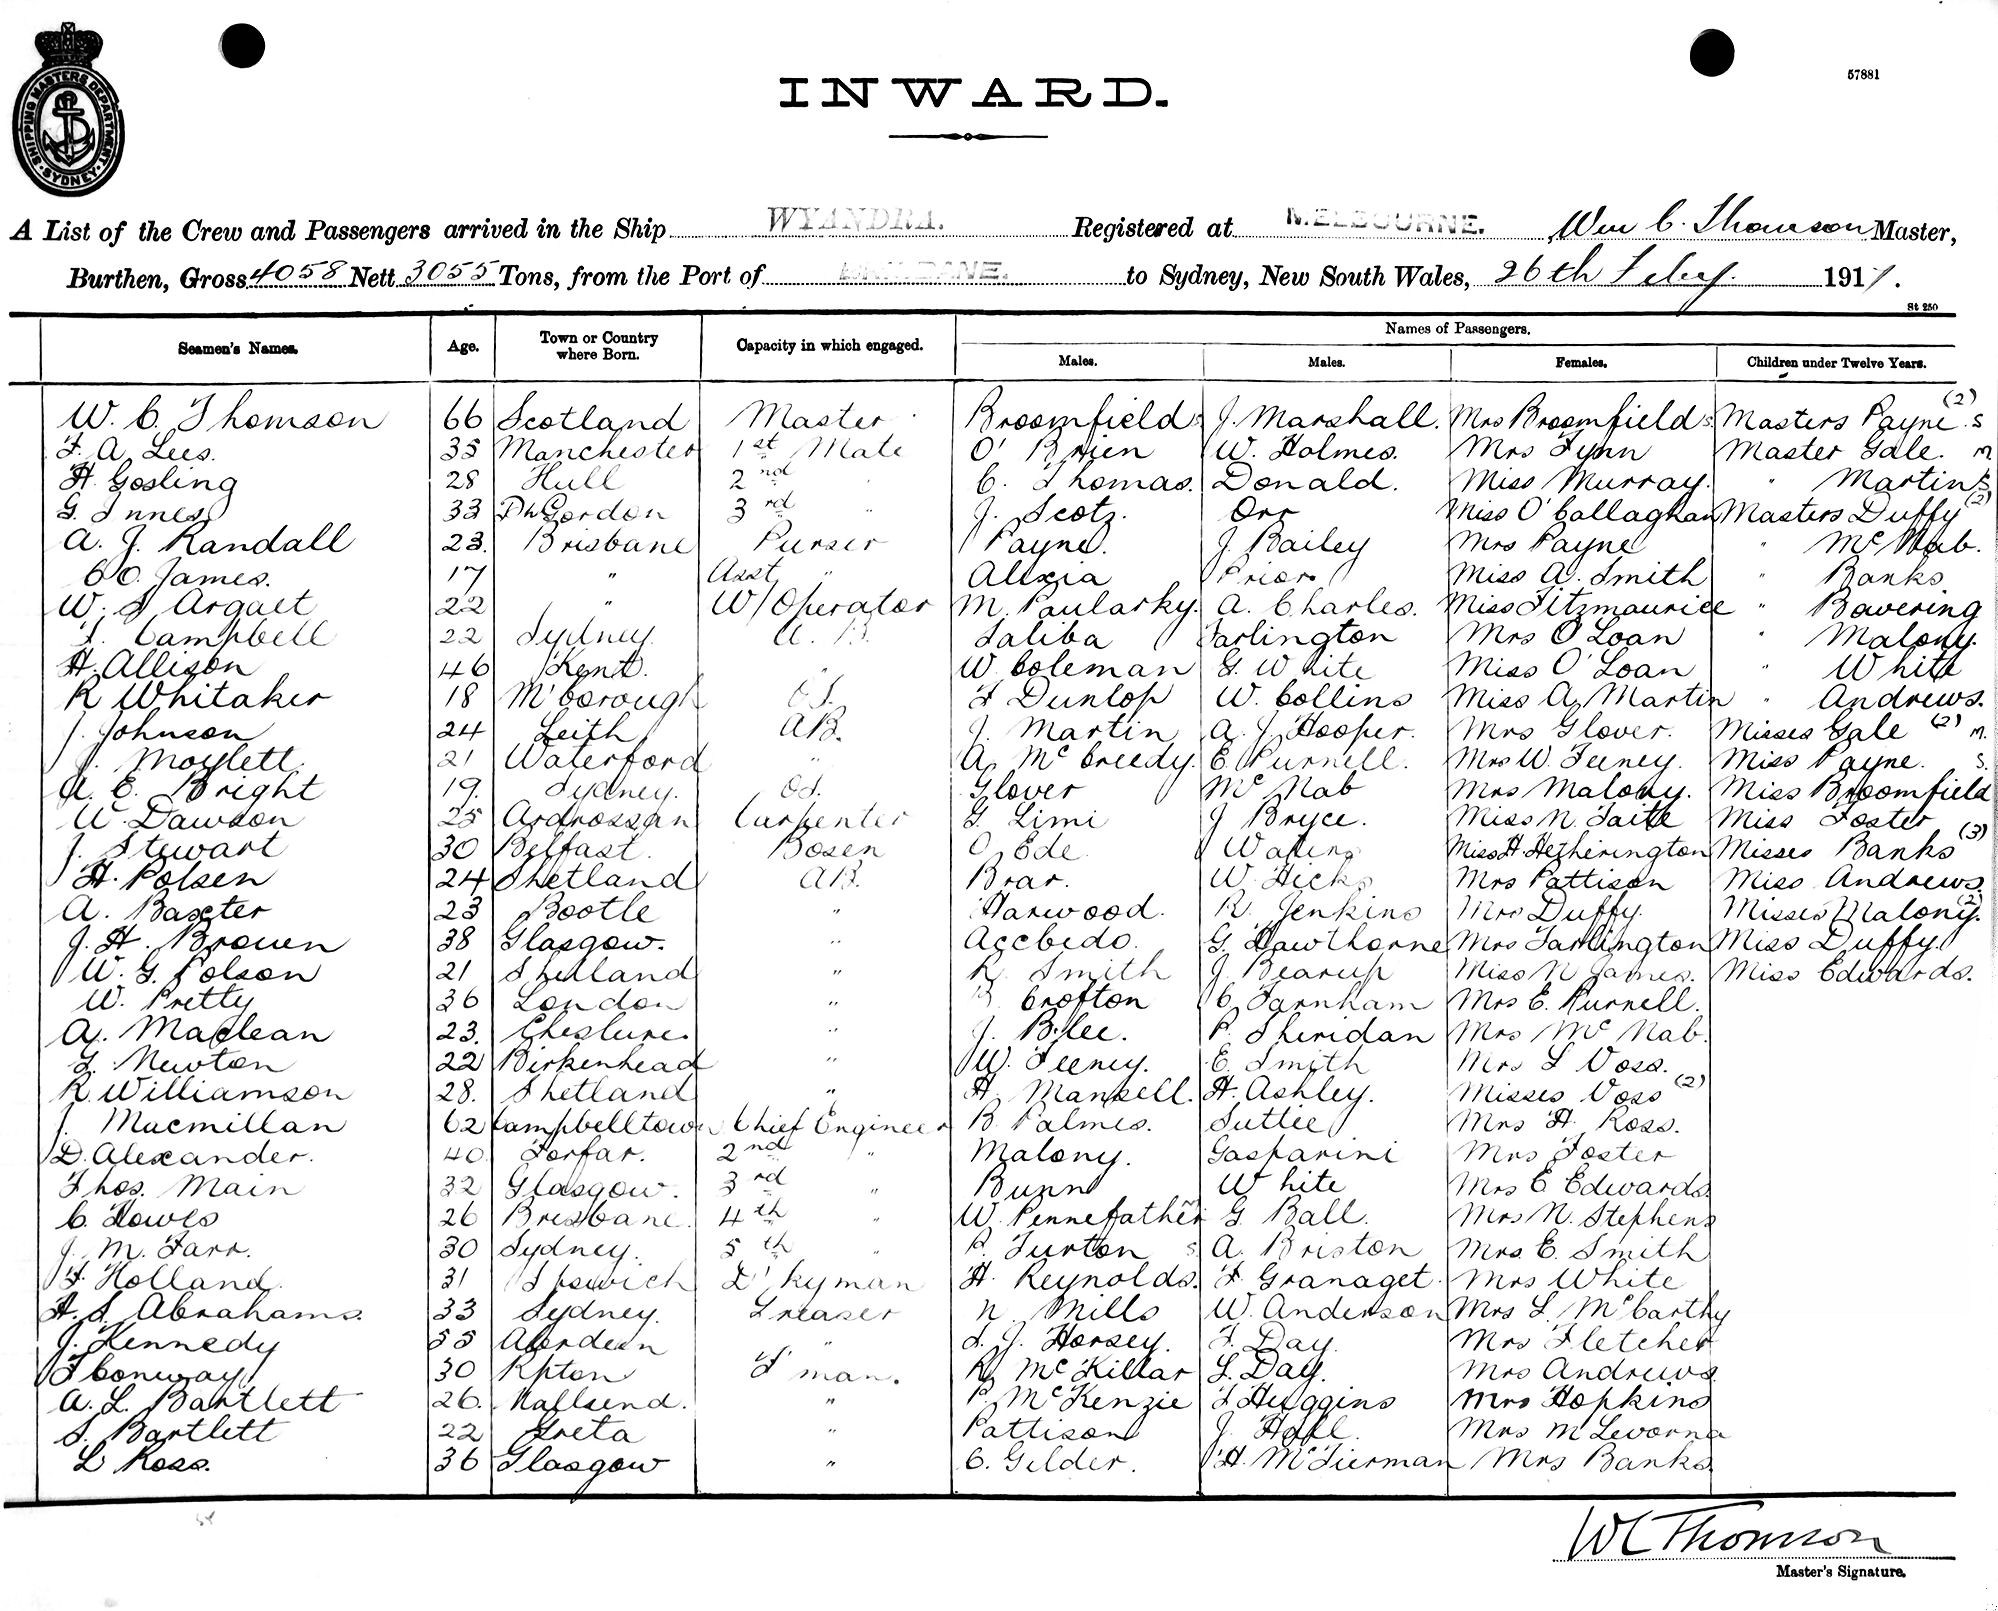 SHIPPING MASTERS DEPARTMENT
SYDNEY
57881
INWARD.
A List of the Crew and Passengers arrived in the Ship WYANDRA. Registered at MELBOURNE. Wm C. Thomson Master,
Burthen, Gross 4058 Nett 3055 Tons, from the Port of BRISBANE. to Sydney, New South Wales, 26th Feby. 1917.
St 250
Names of Passengers.
Seamen's Names. Age. Town or Country where Born. Capacity in which engaged. Males. Males. Females. Children under Twelve Years.
W. C. Thomson 66 Scotland Master Broomfield J. Marshall. Mrs Broomfield Masters Payne (2) s
F. A. Lees. 35 Manchester 1st Mate O'Brien W. Holmes. Mrs Fynn Master Gale. m
H. Gosling 28 Hull 2nd " C. Thomas. Donald. Miss Murray. " Martin s
G. Innes 33 Pt Gordon 3rd " J. Scotz. Orr Miss O'Callaghan Masters Duffy (2)
A. J. Randall 23. Brisbane Purser Payne. J Bailey Mrs Payne " McNab.
C O. James. 17 " Asst " Alexia Prior Miss A. Smith " Banks
W. S Argaet 22 " W/Operator M. Paularky. A. Charles. Miss Fitzmaurice " Bowering
F. Campbell 22 Sydney. A. B. Saliba Tarlington Mrs O'Loan " Malony.
H. Allison 46 Kent. " W Coleman G. White Miss O'Loan " White
R Whitaker 18 M'borough O.S. F Dunlop W. Collins Miss A. Martin " Andrews.
J. Johnson 24 Leith AB. J. Martin A. J Hooper. Mrs Glover. Misses Gale (2) m.
J. Moylett. 21 Waterford " A. McCreedy. E Purnell. Mrs W. Feeney. Miss Payne. s.
A. E. Bright 19. Sydney. OS. Glover McNab Mrs Malony. Miss Broomfield
W. Dawson 25 Ardrossan Carpenter G. Limi J Bryce. Miss N. Taite Miss Foster
J. Stewart 30 Belfast. Bosen O. Ede Miss H. Hetherington Misses Banks (3)
H. Polsen 24 Shetland AB. Brar. W Hicks Mrs Pattison Miss Andrews.
A. Baxter 23 Bootle " Harwood. R. Jenkins Mrs Duffy. Misses Malony. (2)
J. H. Brown 38 Glasgow. " Accbedo. G. Hawthorne Mrs Tarlington Miss Duffy.
W. G. Polson 21 Shetland " R. Smith J. Bearup Miss N James. Miss Edwards.
W. Pretty 36 London " Crofton C. Farnham Mrs E. Purnell.
A. Maclean 23. Cheshire. " J. Blee. P. Sheridan Mrs McNab.
Newton 22 Birkenhead " W. Feeney. E. Smith Mrs L Voss.
R. Williamson 28. Shetland " H. Mansell. H. Ashley. Misses Voss (2)
J. Macmillan 62 Campbelltown Chief Engineer B. Palmes. Suttie Mrs H. Ross.
D. Alexander. 40. Forfar. 2nd " Malony. Gasparini Mrs Foster
Thos. Main 32 Glasgow. 3rd " Bunn White Mrs E Edwards.
C. Howes 26 Brisbane. 4th " W. Pennefather G. Ball. Mrs N. Stephens
J. M. Farr. 30 Sydney. 5th " P. Turton s A. Briston Mrs. E. Smith
F Holland. 31 Ipswich D'kyman H. Reynolds. F. Granaget. Mrs White
H. S. Abrahams. 33 Sydney. Greaser N. Mills W. Anderson Mrs L. McCarthy
J. Kennedy 55 Aberdeen " J. Horsey. F. Day. Mrs Fletcher
F Conway 30 Kpton F'man. R. McKillar L. Day. Mrs Andrews
A. L. Bartlett 26. Wallsend. " P. McKenzie F Huggins Mrs Hopkins
S. Bartlett 22 Greta " Pattison J. Mrs M Levorna
L Ross. 36 Glasgow " C. Gelder. H. McTierman Mrs Banks
WC Thomson
Master's Signature.